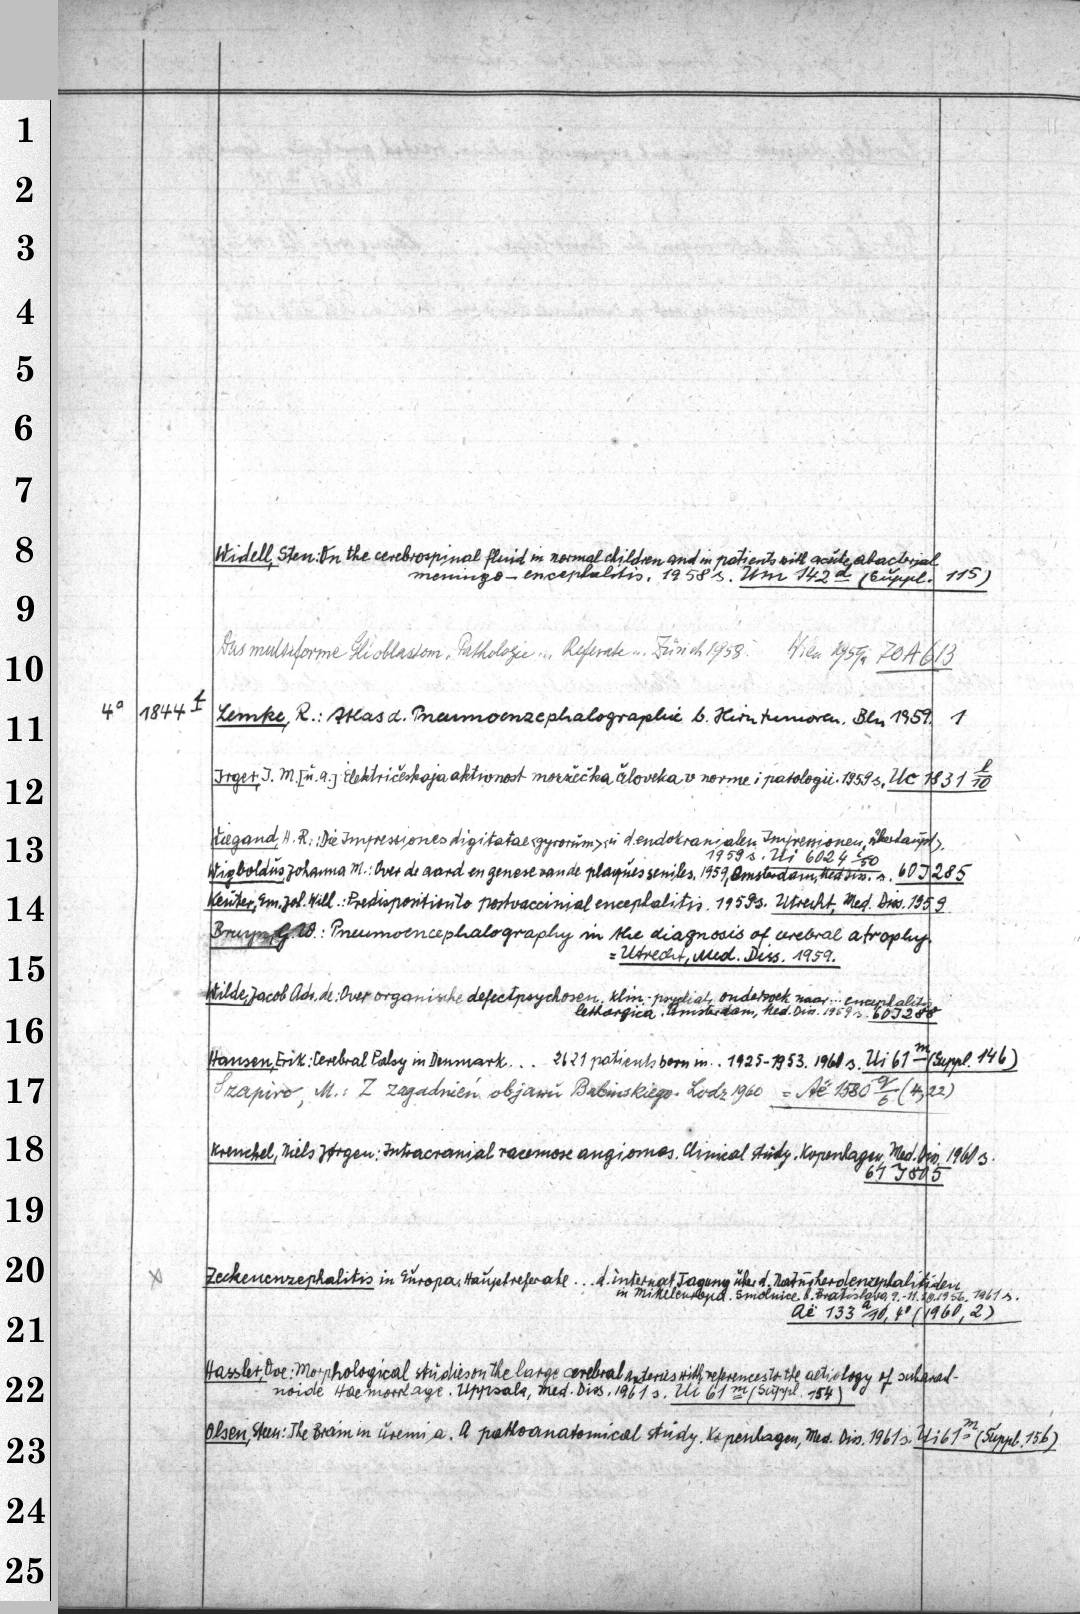 1
2
3
4
5
6
7
8
Widell, Sten: On the cerebrospinal fluid in normal children and in patients with acute, abacterial
meningo-encephalitis. 1958 s. Um 142 d (Suppl. 115)
9
10
Das multiforme Glioblastom. Pathologie ... Referate ... Zürich 1958. Wien 1959 ZOA 613
11
4° 1844 f Lemke, R.: Atlas d. Pneumoenzephalographie b. Hirntumoren. Bln 1959. 1
12
Irger, I. M. [u.a.] Električeskaja aktivnost mozžečka čeloveka v norme i patologii. 1959 s. Uc 1831 l/10
13
Wiegand, H. R.: Die Impressiones digitatae <gyrorum> u d. endokranialen Impressionen, überhaupt>.
1959 s. Ui 6024 50
Wigboldus, Johanna M.: Over de aard en genese van de plaques seniles. 1959, Amsterdam, Med. Diss. s. 60 J 285
14
Keuter, Em. Joh. Will.: Predisposition to postvaccinial encephalitis. 1959 s. Utrecht, Med. Diss. 1959
Bruyn, G. W.: Pneumoencephalography in the diagnosis of cerebral atrophy.
= Utrecht, Med. Diss. 1959.
15
Wilde, Jacob Adr. de: Over organische defectpsychosen, klin.-psychiatr. onderzoek naar ... encephalitis
lethargica. Amsterdam, Med. Dis. 1959 s. 60 J 288
16
Hansen, Erik: Cerebral Palsy in Denmark. ... 2621 patients born in .. 1925-1953. 1960 s. Ui 61 m (Suppl. 146)
17
Szapiro, M.: Z zagadnień objawu Babinskiego. Lodz 1960 = Aë 1580 9/6 (4,22)
18
Krenchel, Niels Jørgen: Intracranial racemose angiomas. Clinical study. Kopenhagen, Med. Dis. 1961 s.
61 J 805
19
20
x Zeckenenzephalitis in Europa, Hauptreferate ... d. internat. Tagung über d. Naturherdenzephalitiden
in Mitteleuropa. Smolnice b. Bratislava, 9.-11. 10. 1956. 1961 s.
Aë 133 a/10, 4° (1960, 2)
21
Hassler, Ove: Morphological studies on the large cerebral arteries with reference to the aetiology of subarach-
noide Haemorrhage. Uppsala, Med. Diss. 1961 s. Ui 61 m (Suppl. 154)
22
Olsen, Steen: The Brain in uremia. A pathoanatomical study. Kopenhagen, Med. Dis. 1961 s. Ui 61 m (Suppl. 156)
23
24
25